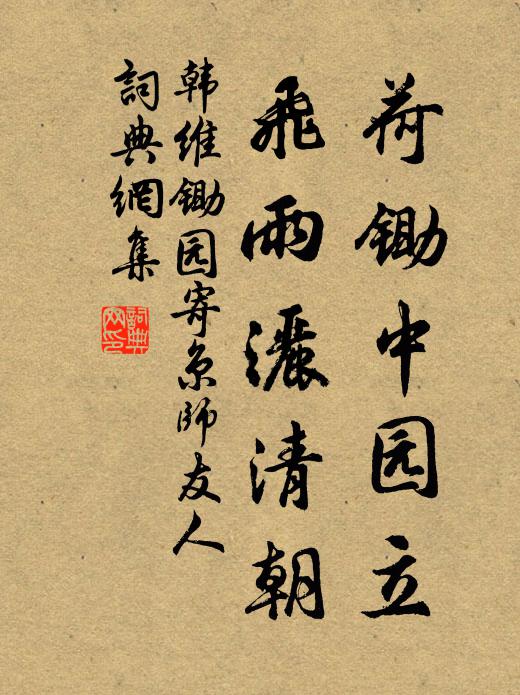 荷锄中园立
飛雨灑清朝
韩維锄园寄京師友人
詞典網集
詞典网印